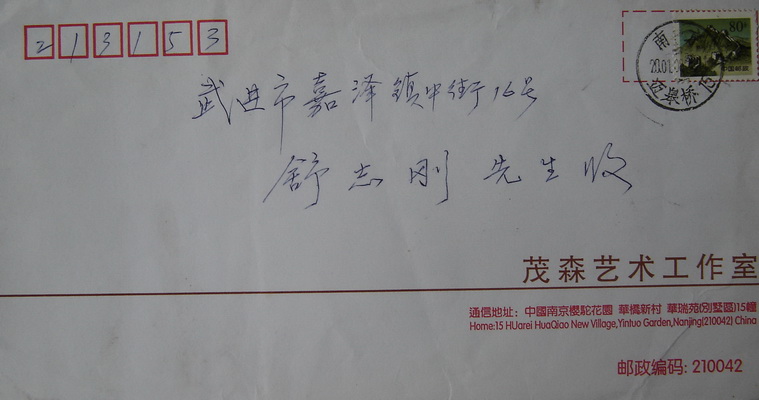 213153
80
中国邮政
武进市嘉泽镇中街16号
舒志刚 先生收
茂森艺术工作室
通信地址：中國南京櫻駝花園 華僑新村 華瑞苑(別墅區)15幢
Home:15 HUarei HuaQiao New Village,Yintuo Garden,Nanjing(210042) China
邮政编码: 210042